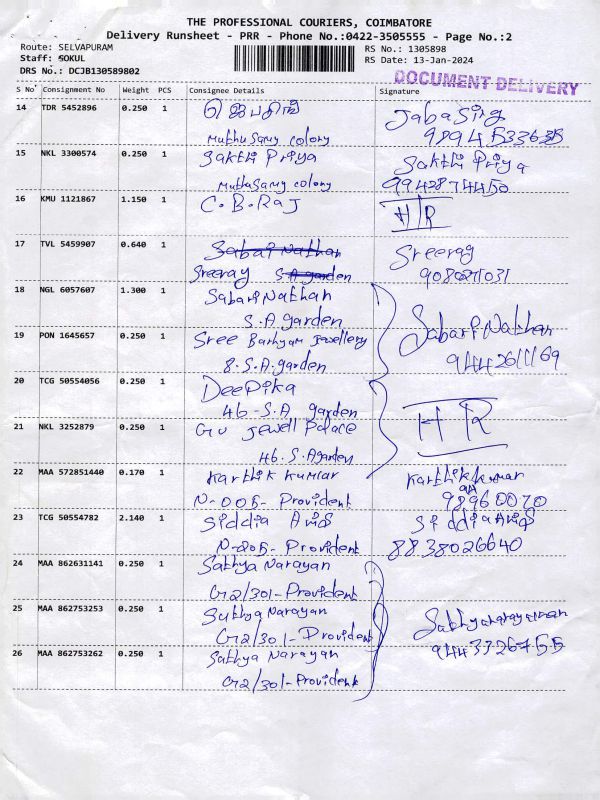 THE PROFESSIONAL COURIERS, COIMBATORE
Delivery Runsheet - PRR - Phone No.:0422-3505555 - Page No.:2
Route: SELVAPURAM RS No.: 1305898
Staff: GOKUL RS Date: 13-Jan-2024
DRS No.: DCJB130589802
DOCUMENT DELIVERY
S No Consignment No Weight PCS Consignee Details Signature
14 TDR 5452896 0.250 1 ஜெபசிங் Jaba Sing
Muthusamy colony 9894533635
15 NKL 3300574 0.250 1 Sakthi Priya Sakthi Priya
Muthusamy colony 9942874450
16 KMU 1121867 1.150 1 C.B.Raj H/R
17 TVL 5459907 0.640 1 Sabari Nathan Sreeraj
Sreeraj S.A garden
18 NGL 6057607 1.300 1 Sabari Nathan
S.A.garden Sabari Nathan
19 PON 1645657 0.250 1 Sree Jewellery
8.S.A.garden
20 TCG 50554056 0.250 1 Deepika
46-S.A garden H R
21 NKL 3252879 0.250 1 Jewell Palace
46.S.Agarden
22 MAA 572851440 0.170 1 Karthik Kumar Karthik kumar
N-005- Provident
23 TCG 50554782 2.140 1
N-205- Provident 8838026640
24 MAA 862631141 0.250 1 Sathya Narayan
G2/301-Provident
25 MAA 862753253 0.250 1 Sathya Narayan Sathyanarayanan
G2/301-Provident 9443326755
26 MAA 862753262 0.250 1 Sathya Narayan
G2/301-Provident